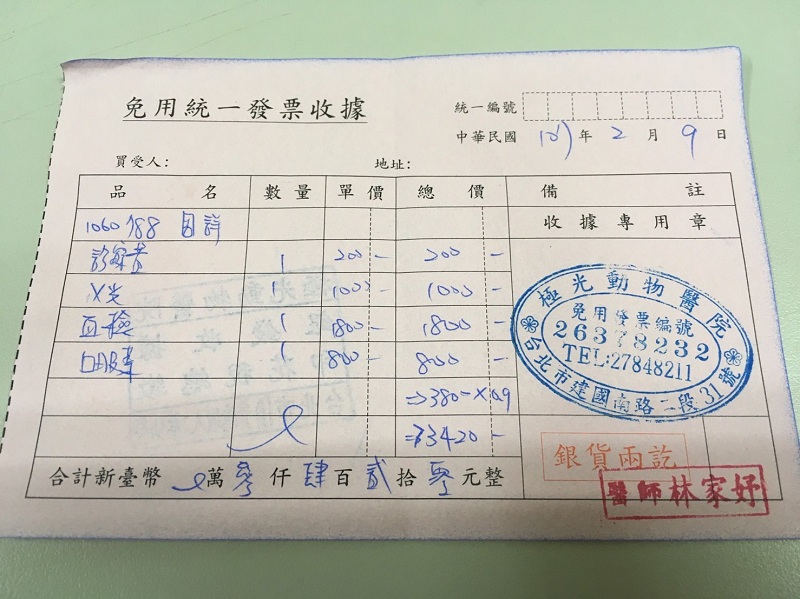 免用統一發票收據
統一編號
中華民國 年 2 月 9 日
買受人: 地址:
品名 數量 單價 總價 備註
1060188 收據專用章
診察費 1 200- 200-
X光 1 1000- 1000-
血檢 1 1800- 1800-
1 800- 800-
⇒380-X0.9
⇒3420-
合計新臺幣 萬參仟肆百貳拾零元整
極光動物醫院
免用發票編號
26378232
TEL:27848211
台北市建國南路二段31號
銀貨兩訖
醫師林家妤